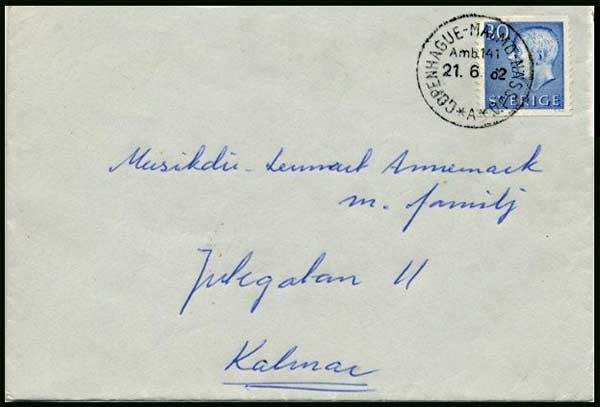 COPENHAGUE-MALMÖ-NÄSSJÖ
Amb.141
21. 6. 62
*A*
20
SVERIGE
Musikdir. Lennart Annemark
m. familj
Julegatan 11
Kalmar